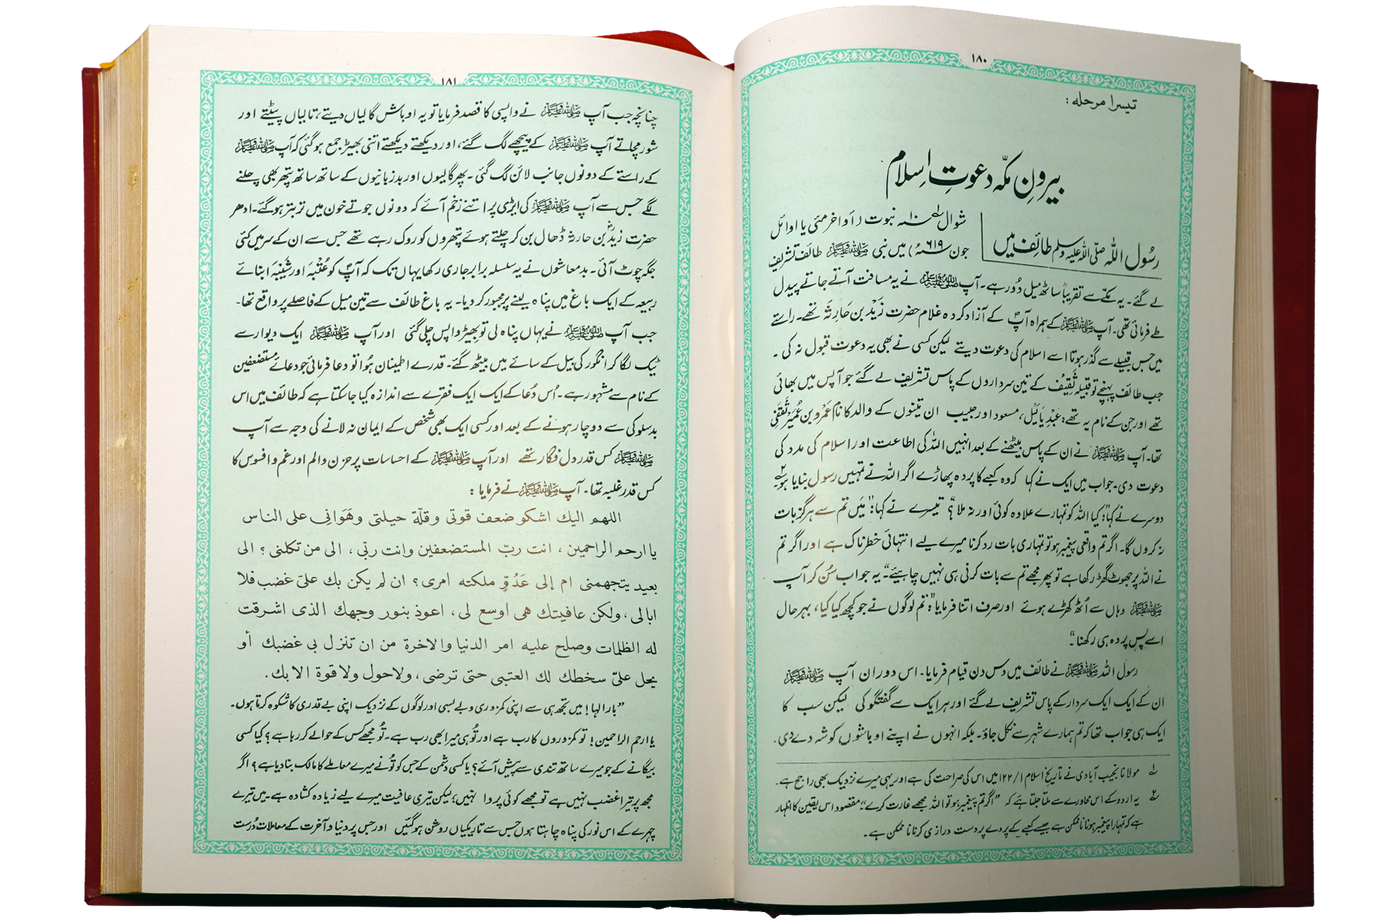 ۱۸۰
تیسرا مرحلہ:
بیرونِ مکّہ دعوتِ اِسلام
رسُول اللہ صلی اللہ علیہ وسلم طائف میں
شوال ۱۰ نبوت (اواخر مئی یا اوائل
جون ۶۱۹ء) میں نبی ﷺ طائف تشریف
لے گئے۔ یہ مکّے سے تقریباً ساٹھ میل دُور ہے۔ آپ ﷺ نے یہ مسافت آتے جاتے پیدل
طے فرمائی تھی۔ آپ ﷺ کے ہمراہ آپؐ کے آزاد کردہ غلام حضرت زیدؓ بن حارثہ تھے۔ راستے
میں جس قبیلے سے گذر ہوتا اسے اسلام کی دعوت دیتے لیکن کسی نے بھی یہ دعوت قبول نہ کی۔
جب طائف پہنچے تو قبیلہ ثقیف کے تین سرداروں کے پاس تشریف لے گئے جو آپس میں بھائی
تھے اور جن کے نام یہ تھے، عبدیالیل، مسعود اور حبیب ان تینوں کے والد کا نام عمرو بن عمیر ثقفی
تھا۔ آپ ﷺ نے ان کے پاس بیٹھنے کے بعد انہیں اللہ کی اطاعت اور اسلام کی مدد کی
دعوت دی۔ جواب میں ایک نے کہا کہ وہ کعبے کا پردہ پھاڑے اگر اللہ نے تمہیں رسول بنایا ہو۔
دوسرے نے کہا: کیا اللہ کو تمہارے علاوہ کوئی اور نہ ملا؟ تیسرے نے کہا: "میں تم سے ہرگز بات
نہ کروں گا۔ اگر تم واقعی پیغمبر ہو تو تمہاری بات رد کرنا میرے لیے انتہائی خطرناک ہے اور اگر تم
نے اللہ پر جھوٹ گھڑ رکھا ہے تو پھر مجھے تم سے بات کرنی ہی نہیں چاہیئے"۔ یہ جواب سُن کر آپ
ﷺ وہاں سے اُٹھ کھڑے ہوئے اور صرف اتنا فرمایا: "تم لوگوں نے جو کچھ کیا کیا، بہرحال
اسے پسِ پردہ ہی رکھنا"۔
رسول اللہ ﷺ نے طائف میں دس دن قیام فرمایا۔ اس دوران آپ ﷺ
ان کے ایک ایک سردار کے پاس تشریف لے گئے اور ہر ایک سے گفتگو کی لیکن سب کا
ایک ہی جواب تھا کہ تم ہمارے شہر سے نکل جاؤ۔ بلکہ انہوں نے اپنے اوباشوں کو شہ دے دی۔
۱ مولانا نجیب آبادی نے تاریخ اسلام ۱/۱۲۲ میں اس کی صراحت کی ہے اور یہی میرے نزدیک بھی راجح ہے۔
۲ یہ اردو کے اس محاورے سے ملتا جلتا ہے کہ "اگر تم پیغمبر ہو تو اللہ مجھے غارت کرے" مقصود اس یقین کا اظہار
ہے کہ تمہارا پیغمبر ہونا ناممکن ہے جیسے کعبے کے پردے پر دست درازی کرنا ناممکن ہے۔
۱۸۱
چنانچہ جب آپ ﷺ نے واپسی کا قصد فرمایا تو یہ اوباش گالیاں دیتے، تالیاں پیٹتے اور
شور مچاتے آپ ﷺ کے پیچھے لگ گئے، اور دیکھتے دیکھتے اتنی بھیڑ جمع ہوگئی کہ آپ ﷺ
کے راستے کے دونوں جانب لائن لگ گئی۔ پھر گالیوں اور بدزبانیوں کے ساتھ ساتھ پتھر بھی چلنے
لگے جس سے آپ ﷺ کی ایڑی پر اتنے زخم آئے کہ دونوں جوتے خون میں تربتر ہوگئے۔ ادھر
حضرت زیدؓ بن حارثہ ڈھال بن کر چلتے ہوئے پتھروں کو روک رہے تھے جس سے ان کے سر میں کئی
جگہ چوٹ آئی۔ بدمعاشوں نے یہ سلسلہ برابر جاری رکھا یہاں تک کہ آپؐ کو عُتْبہ اور شَیْبہ ابنائے
ربیعہ کے ایک باغ میں پناہ لینے پر مجبور کر دیا۔ یہ باغ طائف سے تین میل کے فاصلے پر واقع تھا۔
جب آپ ﷺ نے یہاں پناہ لی تو بھیڑ واپس چلی گئی اور آپ ﷺ ایک دیوار سے
ٹیک لگا کر انگور کی بیل کے سائے میں بیٹھ گئے۔ قدرے اطمینان ہُوا تو دعا فرمائی جو دعائے مستضعفین
کے نام سے مشہور ہے۔ اُس دُعا کے ایک ایک فقرے سے اندازہ کیا جاسکتا ہے کہ طائف میں اس
بدسلوکی سے دوچار ہونے کے بعد اور کسی ایک بھی شخص کے ایمان نہ لانے کی وجہ سے آپ
ﷺ کس قدر دل فگار تھے اور آپ ﷺ کے احساسات پر حزن والم اور غم و افسوس کا
کس قدر غلبہ تھا۔ آپ ﷺ نے فرمایا:
اللهم اليك اشكو ضعف قوتى وقلة حيلتى وهَوانى على الناس
يا ارحم الراحمين، انت ربّ المستضعفين وانت ربّى، الى من تكلنى؟ الى
بعيد يتجهمنى ام إلى عَدُوٍّ ملكته امرى؟ ان لم يكن بك علىّ غضب فلا
ابالى، ولكن عافيتك هى اوسع لى، اعوذ بنور وجهك الذى اشرقت
له الظلمات وصلح عليه امر الدنيا والاخرة من ان تنزل بى غضبك أو
يحل علىّ سخطك لك العتبىٰ حتى ترضى، ولاحول ولا قوة الا بك.
"بارالہا! میں تجھ ہی سے اپنی کمزوری و بے بسی اور لوگوں کے نزدیک اپنی بے قدری کا شکوہ کرتا ہوں۔
یا ارحم الراحمین! تو کمزوروں کا رب ہے اور تُو ہی میرا بھی رب ہے۔ تو مجھے کس کے حوالے کر رہا ہے؟ کیا کسی
بیگانے کے جو میرے ساتھ تندی سے پیش آئے؟ یا کسی دشمن کے جس کو تُو نے میرے معاملے کا مالک بنا دیا ہے؟ اگر
مجھ پر تیرا غضب نہیں ہے تو مجھے کوئی پروا نہیں؛ لیکن تیری عافیت میرے لیے زیادہ کشادہ ہے۔ میں تیرے
چہرے کے اس نور کی پناہ چاہتا ہوں جس سے تاریکیاں روشن ہوگئیں اور جس پر دنیا و آخرت کے معاملات دُرست